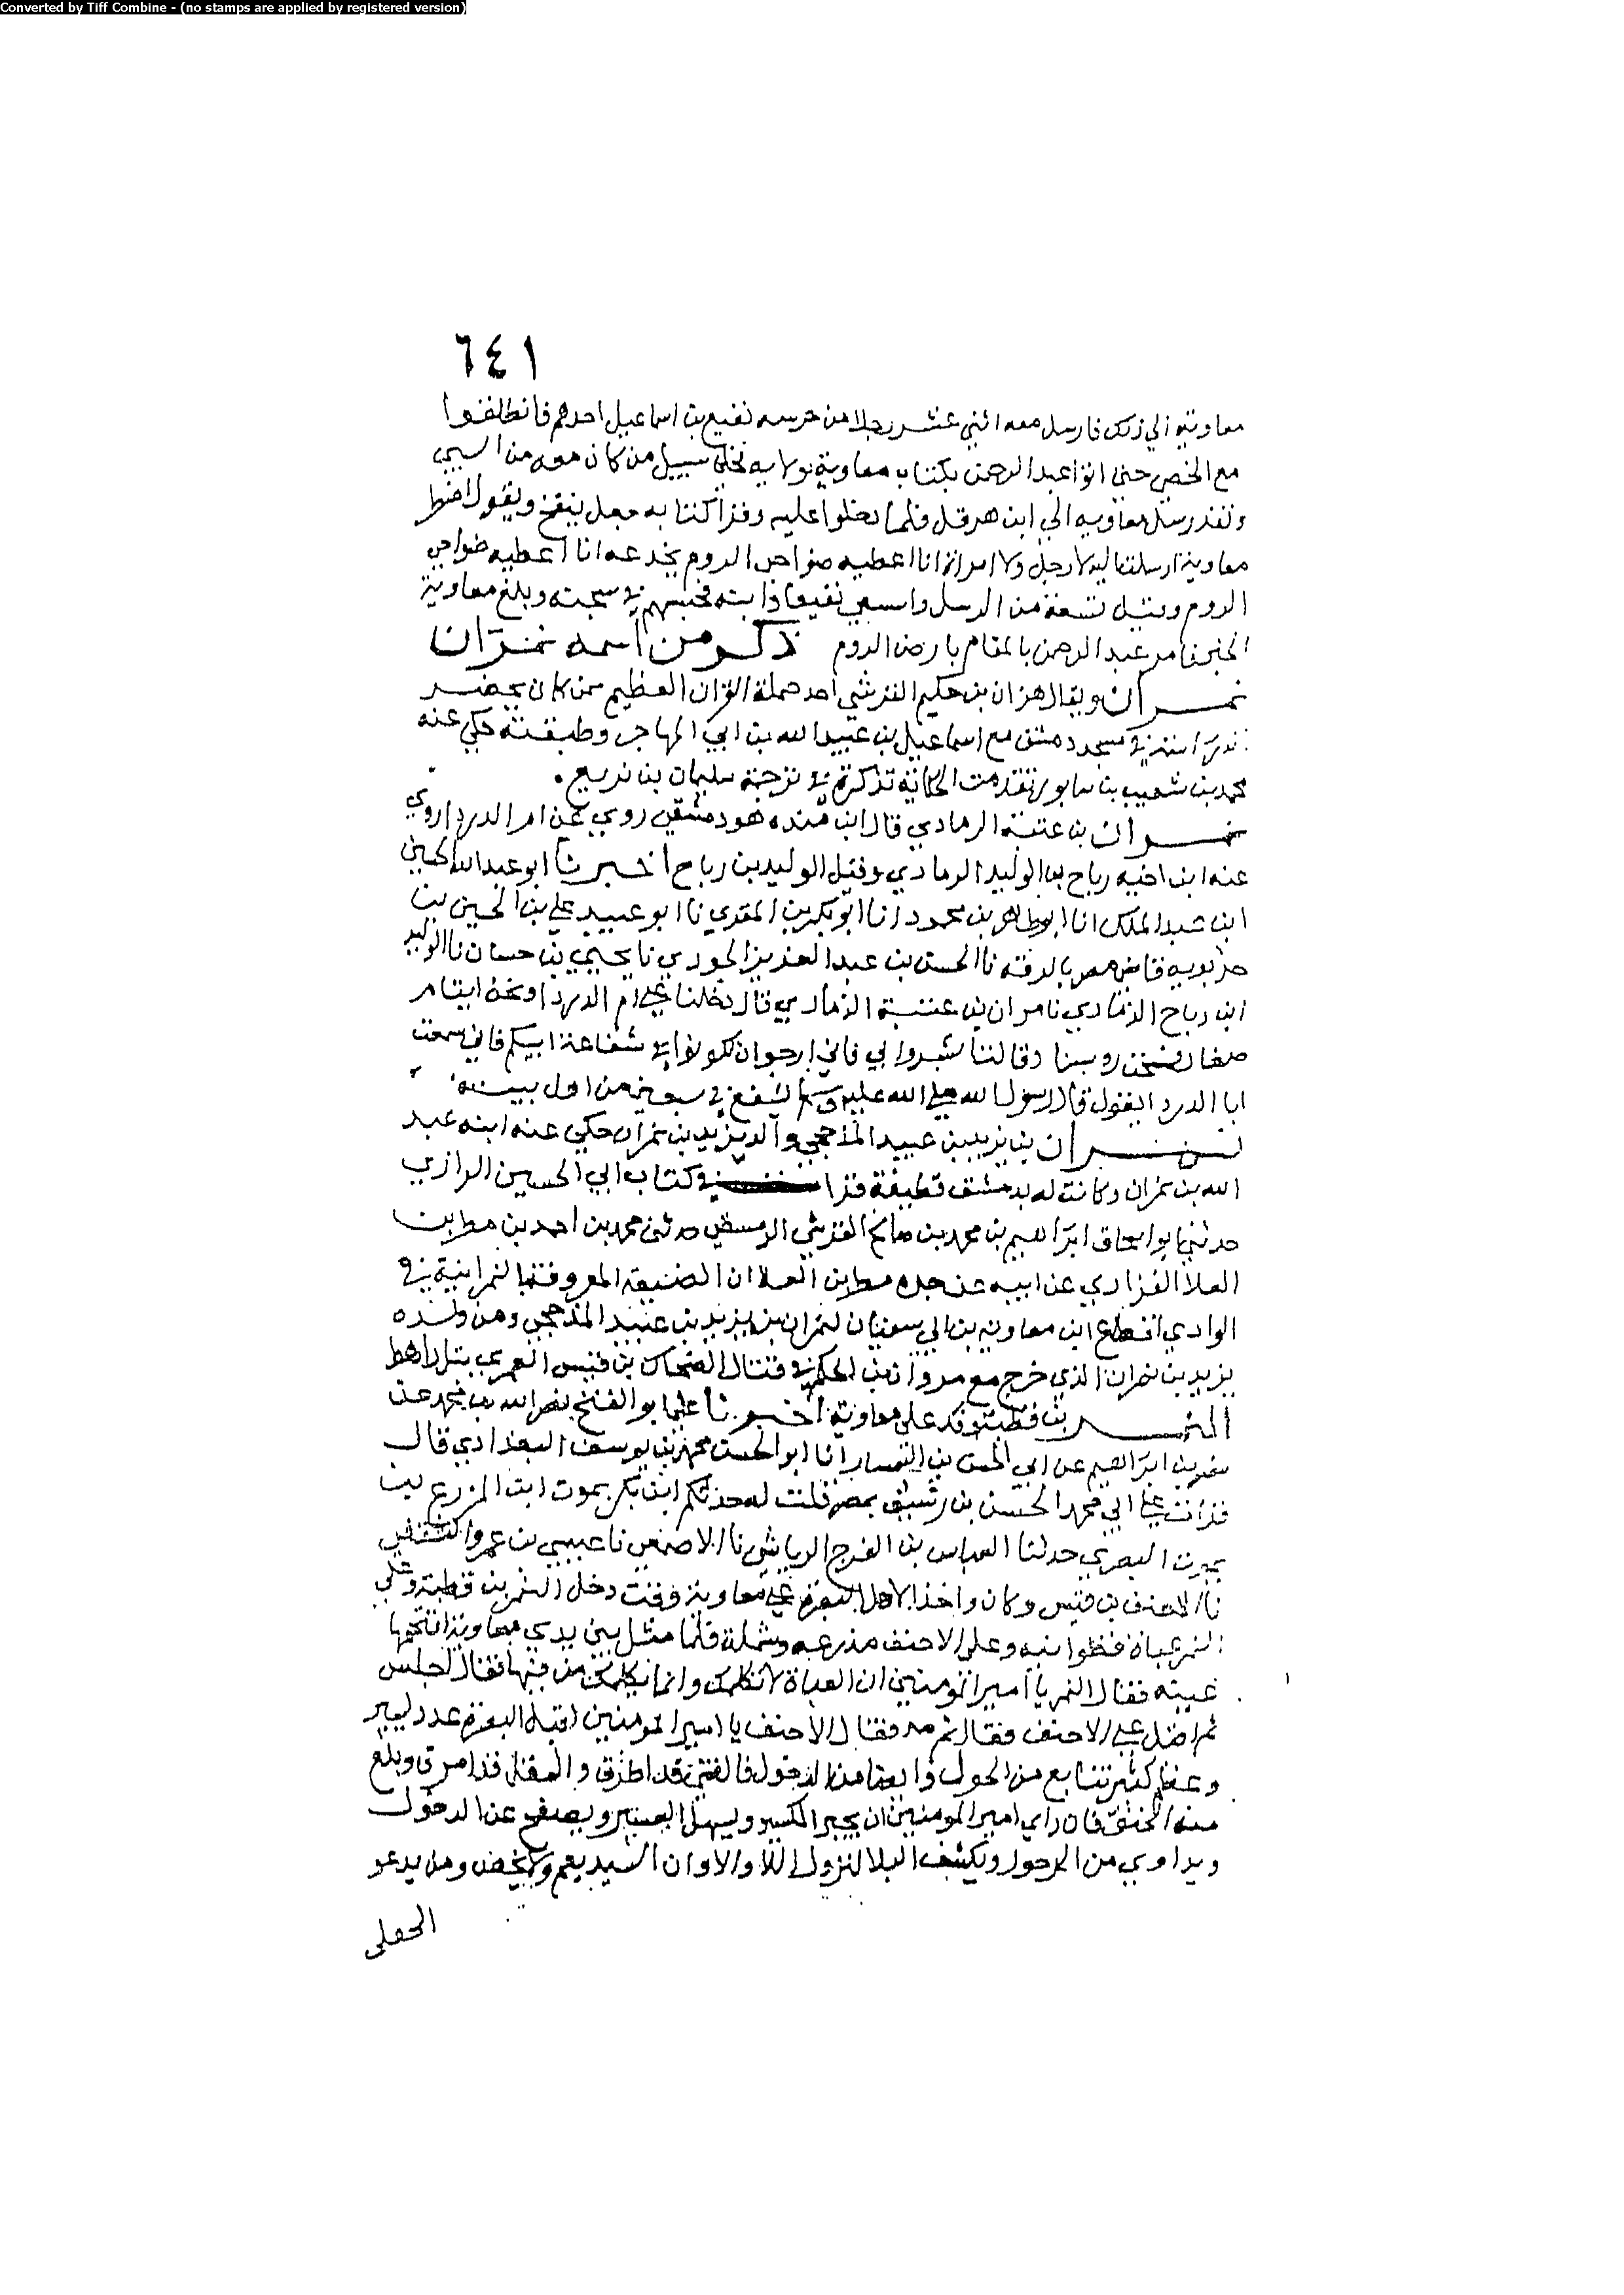 Converted by Tiff Combine - (no stamps are applied by registered version)
٦٤١
معاوية الي ذلك فارسل معه اثني عشر رجلا من حرسه نفيع بن اسماعيل احدهم فانطلقوا
مع الخصي حتي اتوا عبد الرحمن بكتاب معاوية بولايه تخلي سبيل من كان معه من السبي
ونفذ رسل معاويه الي ابن هرقل فلما دخلوا عليه وقرا كتابه جعل ينفخ ويقول
معاوية ارسلتنا اليه لا رجل ولا امراة انا اعطيه ضواحي الروم يخدعه انا اعطيه ضواحي
الروم وقتل تسعة من الرسل واستحيي نفيعا فحبسهم في سجنه وبلغ معاوية
الخبر فامر عبد الرحمن بالمقام بارض الروم ذكر من اسمه نمران
نمران ويقال هزان بن حكيم القرشي احد حملة القران العظيم ممن كان يحضر
في مسجد دمشق مع اسماعيل بن عبيد الله بن ابي المهاجر وطبقته حكي عنه
محمد بن شعيب بن سابور تقدمت الحكاية تذكرته في ترجمة سليمان بن
نمران بن عتبة الرمادي قال ابن منده هو دمشقي روي عن ام الدردا روي
عنه ابن اخيه رباح بن الوليد الرمادي وقيل الوليد بن رباح اخبرنا ابو عبد الله الحسين
ابن عبد الملك انا ابو طاهر بن محمود انا ابو بكر بن المقري نا ابو عبيد علي بن الحسين بن
حربويه قاضي مصر بالرقه نا الحسن بن عبد العزيز الجروي نا يحيي بن حسان نا الوليد
ابن رباح الذماري نا نمران بن عتبة الذماري قال دخلنا علي ام الدردا ونحن ايتام
صغار فمسحت روسنا وقالت ابشروا بني فاني ارجو ان تكونوا في شفاعة ابيكم فاني سمعت
ابا الدردا يقول قال رسول الله صلي الله عليه وسلم الشفيع في سبعين من اهل بيته
نمران بن يزيد بن عبيد المذحجي والد يزيد بن نمران حكي عنه ابنه عبد
الله بن نمران وكانت له بدمشق قطيعة قرا في كتاب ابي الحسين الرازي
حدثني ابو اسحاق ابراهيم بن محمد بن صالح القرشي الدمشقي حدثني محمد بن احمد بن مطر بن
العلا الفزاري عن ابيه عن جده مطر بن العلا ان الضيعة المعروفة بالنمرانية في
الوادي اقطع ابن معاويه بن ابي سفيان لنمران بن يزيد بن عبيد المذحجي ومن ولده
يزيد بن نمران الذي خرج مع مروان بن الحكم في قتال الضحاك بن قيس الفهري بتل راهط
النمر بن قطبة وفد علي معاوية اخبرنا عليا ابو الفتح نصر الله بن محمد عن
نصر بن ابراهيم عن ابي الحسن بن السمسار انا ابو الحسن محمد بن يوسف البغدادي قال
قرات علي ابي محمد الحسن بن رشيق بمصر قلت له حدثكم ابو بكر يموت ابن المزرع بن
يموت البصري حدثنا العباس بن الفرج الرياشي نا الاصمعي نا عيسي بن عمر الثقفي
نا الاحنف بن قيس وكان وافدا لاهل البصرة علي معاوية وقت دخل النمر بن قطبة وعلي
النمر عباة قطوانيه وعلي الاحنف مدرعه وشملة فلما مثل بين يدي معاوية اقتحمها
عينه فقال النمر يا امير المومنين ان العباة لا تكلمك وانما يكلمك من فيها فقال اجلس
ثم اقبل علي الاحنف فقال ثم مه فقال الاحنف يا امير المومنين اهل البصرة عدد يسير
وعظم كسير تتابع من المحول وابعنا من الذحول فالغني قد اطرق والمقل قد املق وبلغ
منه المخنق فان راي امير المومنين ان يجبر الكسير ويسهل العسير ويصفح عن الذحول
ويداوي من المحول ويكشف البلا لنزول اللاوا الا وان السيد يعم ولا يخص ومن يدعو
الجفلى